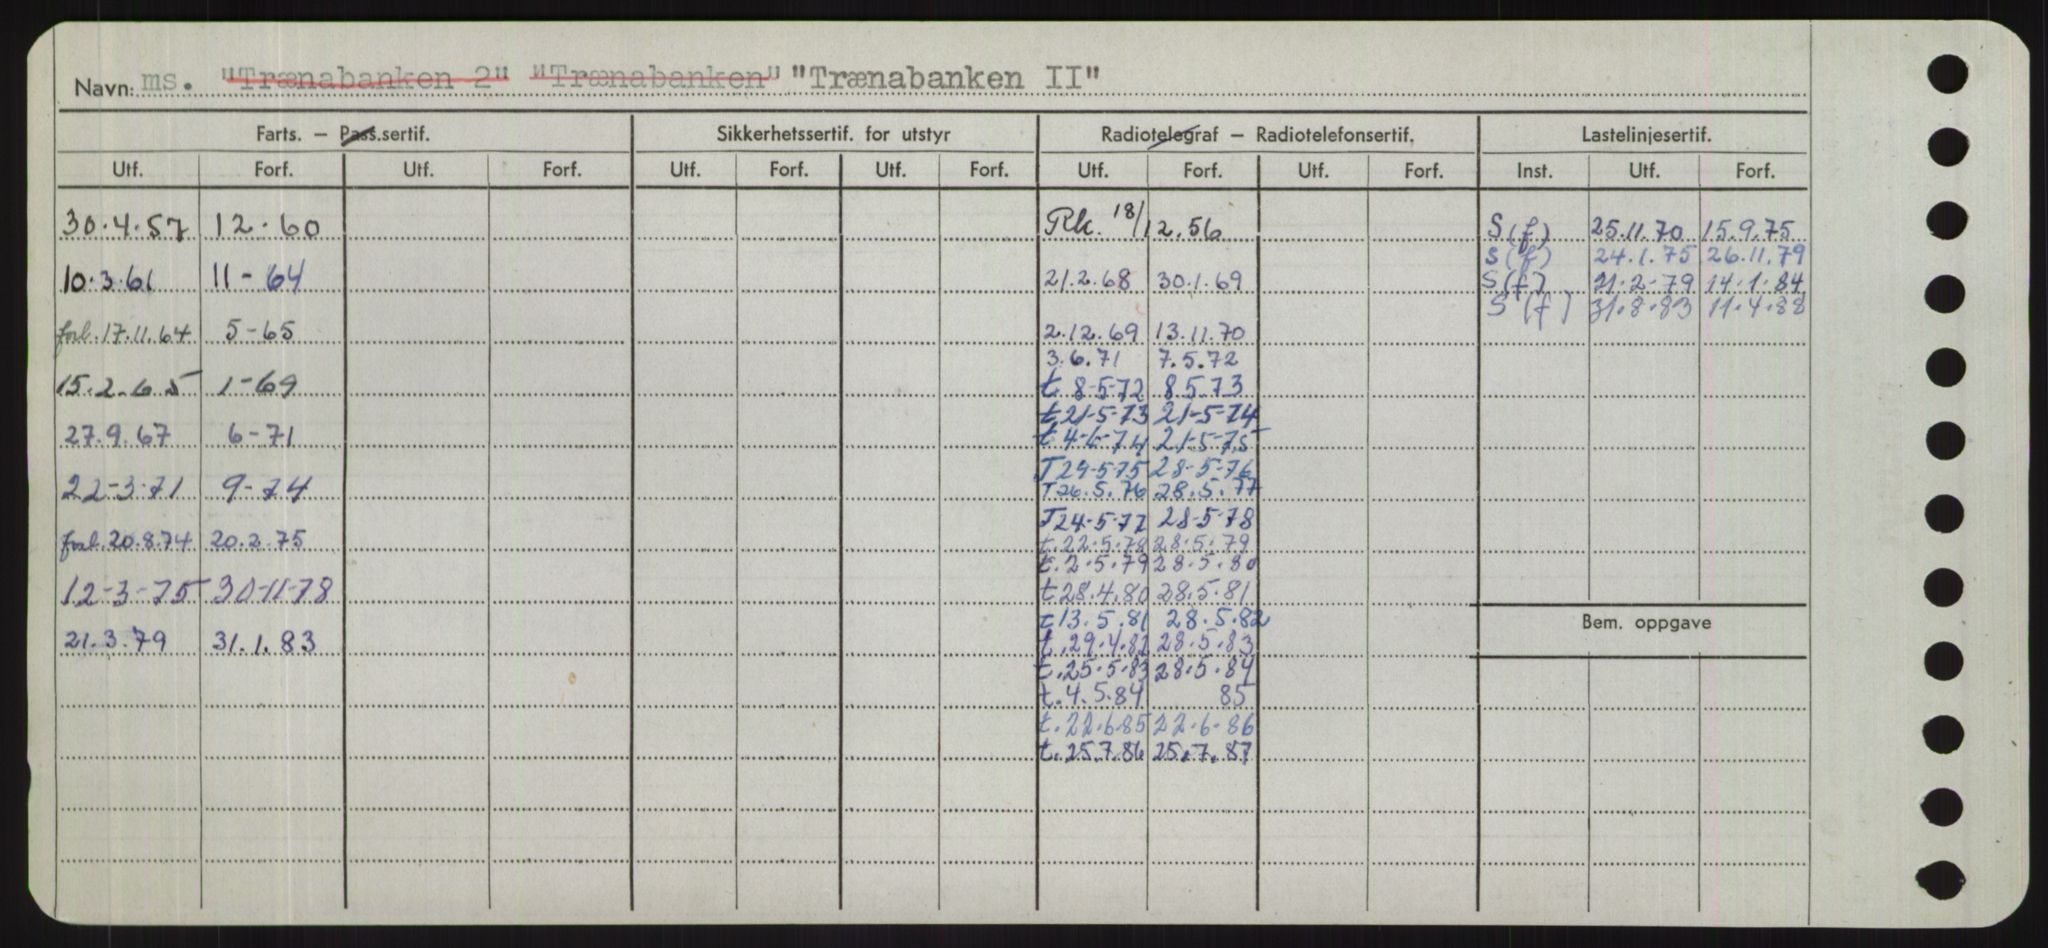 Navn: ms. "Trænabanken 2" "Trænabanken" "Trænabanken II"
Farts. — Pass.sertif. Sikkerhetssertif. for utstyr Radiotelegraf — Radiotelefonsertif. Lastelinjesertif.
Utf. Forf. Utf. Forf. Utf. Forf. Utf. Forf. Utf. Forf. Utf. Forf. Inst. Utf. Forf.
30.4.57 12.60 Rk. 18/12.56 S(f) 25.11.70 15.9.75
S(f) 24.1.75 26.11.79
10.3.61 11-64 21.2.68 30.1.69 S(f) 21.2.79 14.1.84
S(f) 31.8.83 11.4.88
forl. 17.11.64 5-65 2.12.69 13.11.70
3.6.71 7.5.72
15.2.65 1-69 t. 8-5-72 8.5.73
t 21-5-73 21-5-74
27.9.67 6-71 t 4-6-74 21-5-75
T 29-5-75 28-5-76
22-3-71 9-74 T 26.5.76 28.5.77
T 24-5-77 28-5-78
forl. 20.8.74 20.2.75 t. 22.5.78 28.5.79
t. 2.5.79 28.5.80
12-3-75 30-11-78 t 28.4.80 28.5.81
t 13.5.81 28.5.82
Bem. oppgave
21.3.79 31.1.83 t. 29.4.82 28.5.83
t. 25.5.83 28.5.84
t. 4.5.84 85
t. 22.6.85 22.6.86
t. 25.7.86 25.7.87